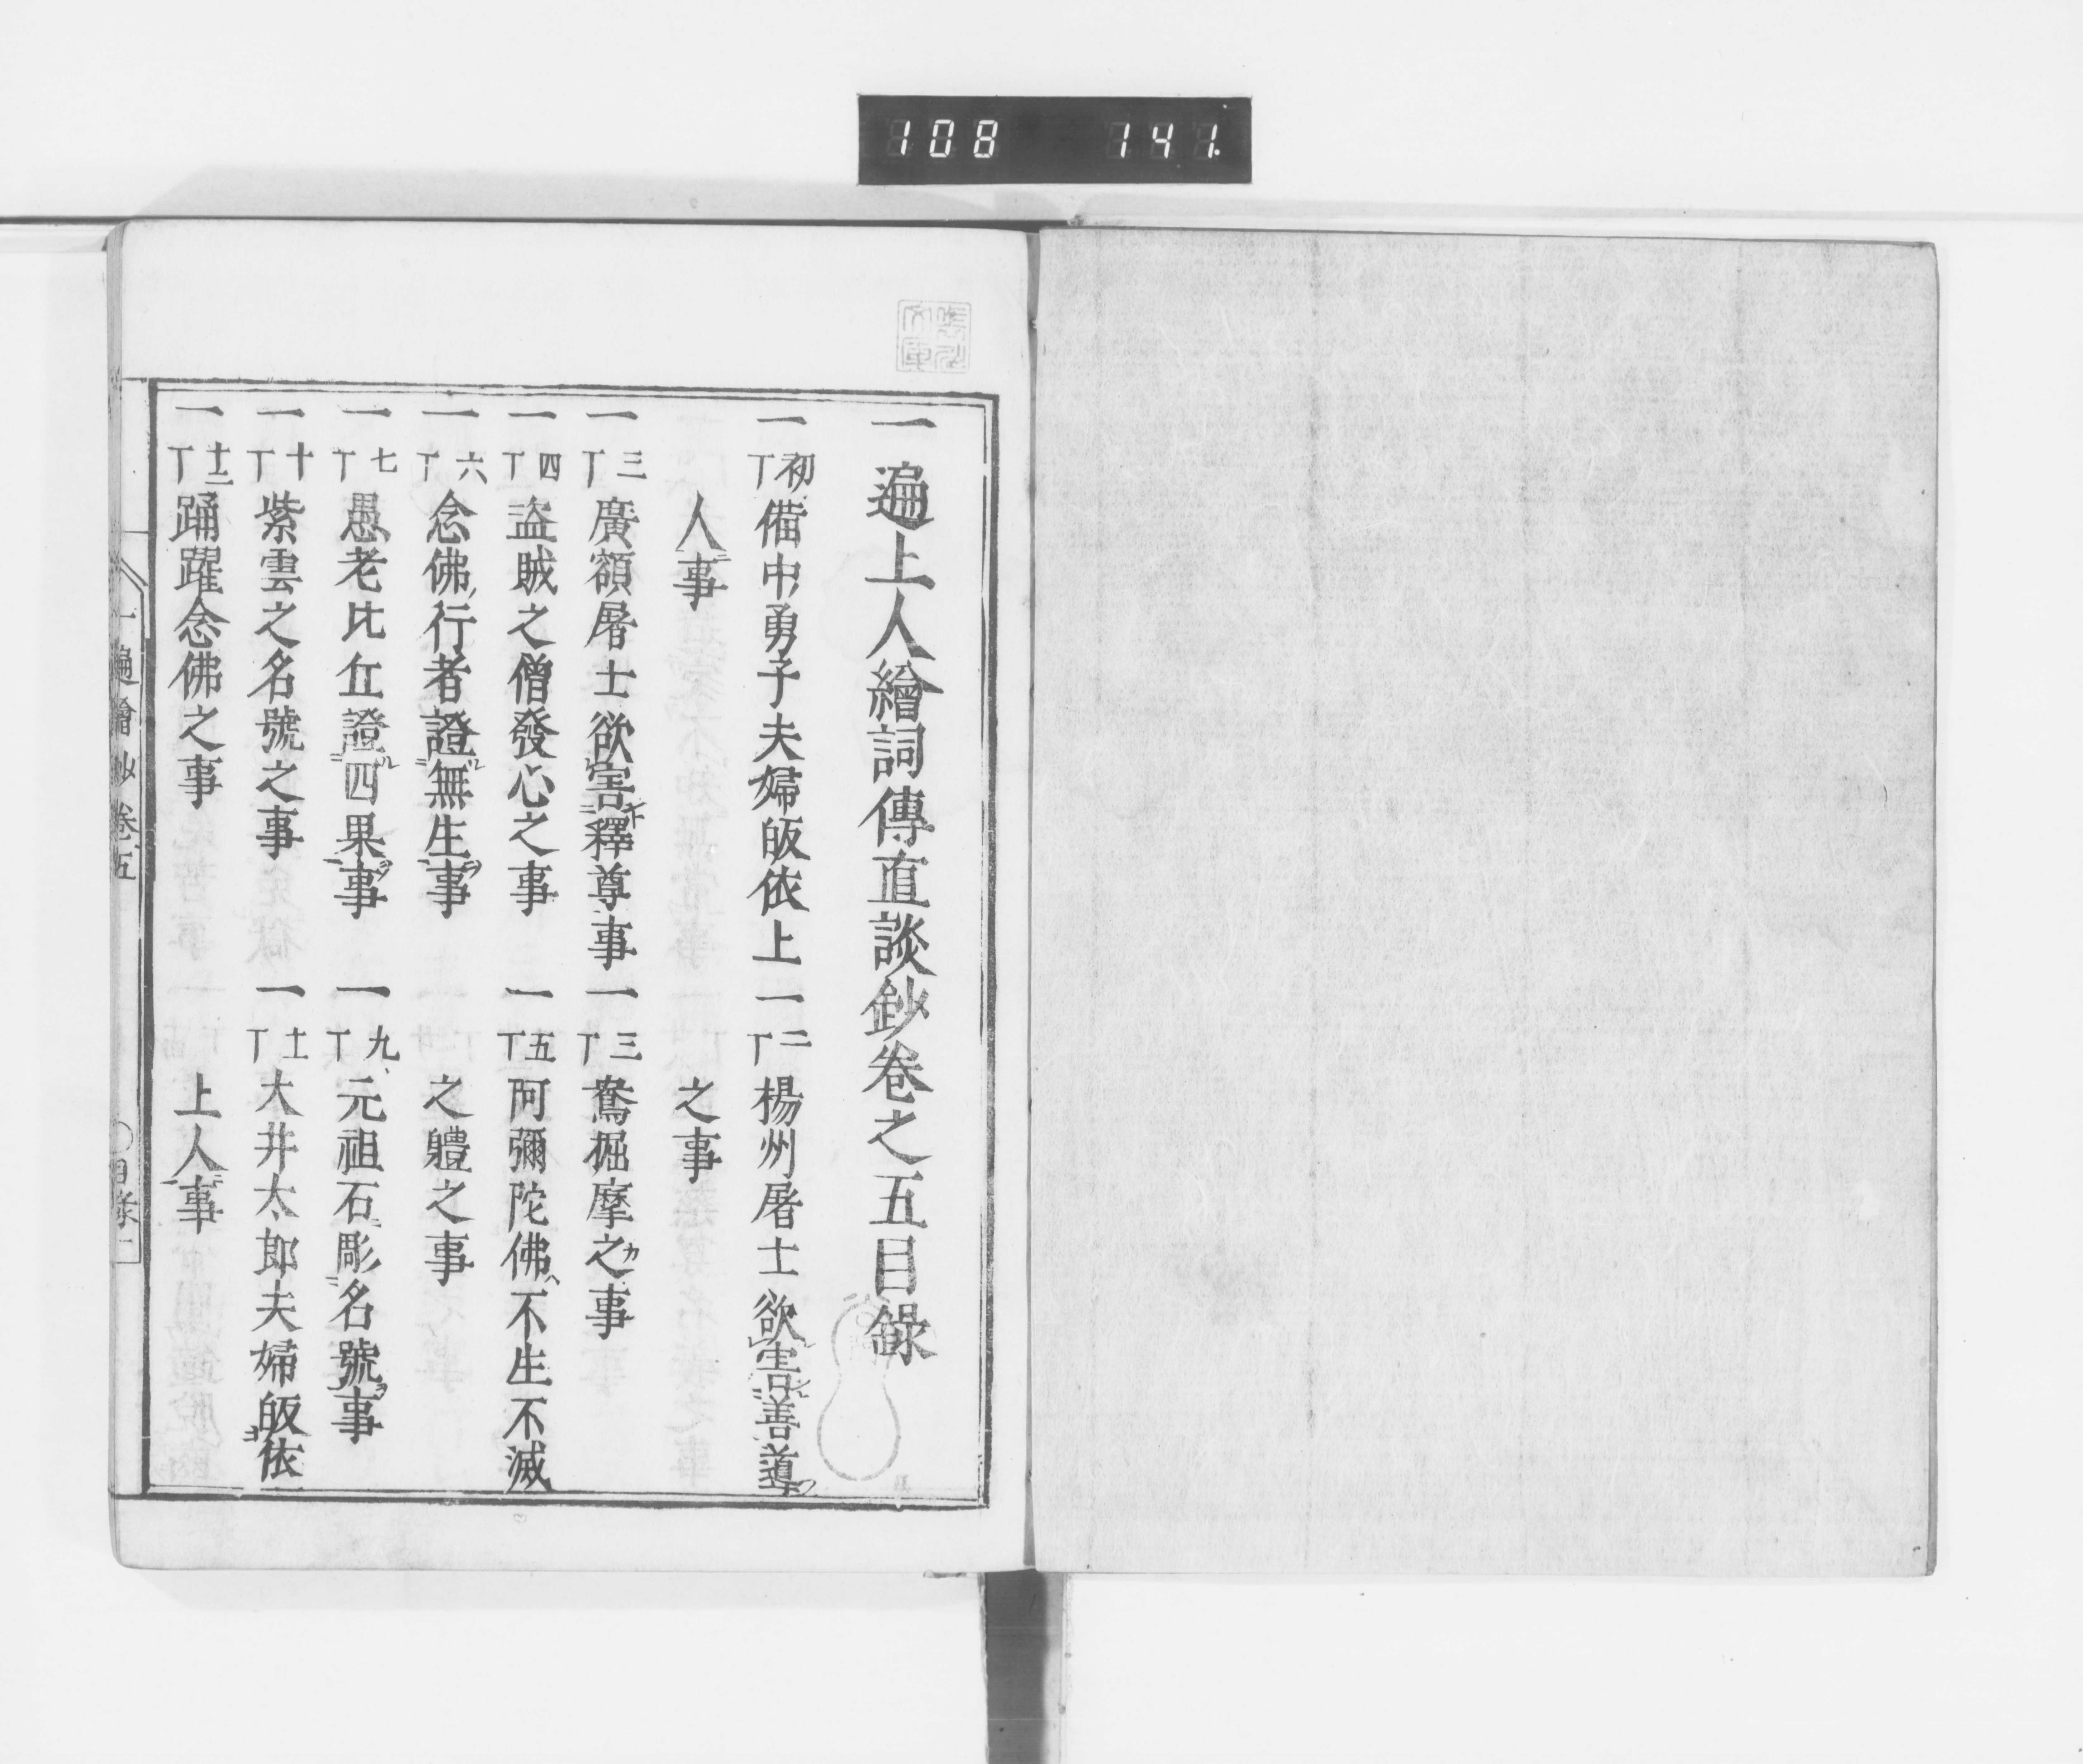 108 141
一遍上人繪詞傳直談鈔卷之五目錄
一初丁備中勇子夫婦皈依上
人ニ事
一二丁楊州屠士欲害善導
之事
一三丁廣額屠士欲害釋尊事
一三丁鴦掘摩之事
一四丁盜賊之僧發心之事
一五丁阿彌陀佛不生不滅
之軆之事
一六丁念佛行者證無生事
一七丁愚老比丘證四果事
一九丁元祖石彫名號事
一十丁紫雲之名號之事
一十一丁大井太郎夫婦皈依
上人ニ事
一十二丁踊躍念佛之事
一遍繪鈔卷五 〇目錄 一